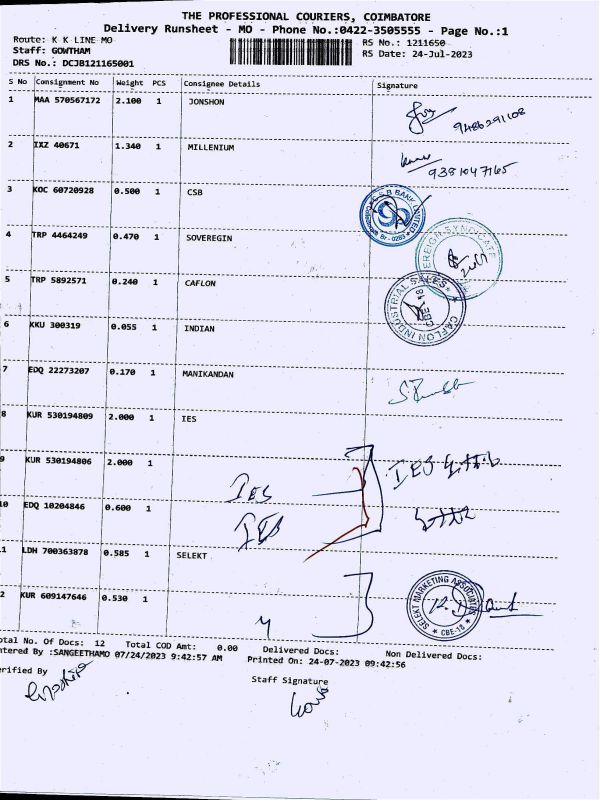 THE PROFESSIONAL COURIERS, COIMBATORE
Delivery Runsheet - MO - Phone No.:0422-3505555 - Page No.:1
Route: K K LINE MO
RS No.: 1211650
Staff: GOWTHAM
RS Date: 24-Jul-2023
DRS No.: DCJB121165001
S No Consignment No Weight PCS Consignee Details Signature
1 MAA 570567172 2.100 1 JONSHON
9486291108
2 IXZ 40671 1.340 1 MILLENIUM
9381047165
3 KOC 60720928 0.500 1 CSB
C S B BANK LIMITED
Br - 0283
4 TRP 4464249 0.470 1 SOVEREGIN
EREIGN SYNDICATE
5 TRP 5892571 0.240 1 CAFLON
CAFLON INDUSTRIAL SALES
CBE - 18
6 KKU 300319 0.055 1 INDIAN
7 EDQ 22273207 0.170 1 MANIKANDAN
8 KUR 530194809 2.000 1 IES
9 KUR 530194806 2.000 1
IES
IES
10 EDQ 10204846 0.600 1
IES
11 LDH 700363878 0.585 1 SELEKT
2 KUR 609147646 0.530 1
SELEKT MARKETING ASSOCIATES
CBE-18
otal No. Of Docs: 12 Total COD Amt: 0.00 Delivered Docs: Non Delivered Docs:
ntered By :SANGEETHAMO 07/24/2023 9:42:57 AM Printed On: 24-07-2023 09:42:56
erified By
Staff Signature